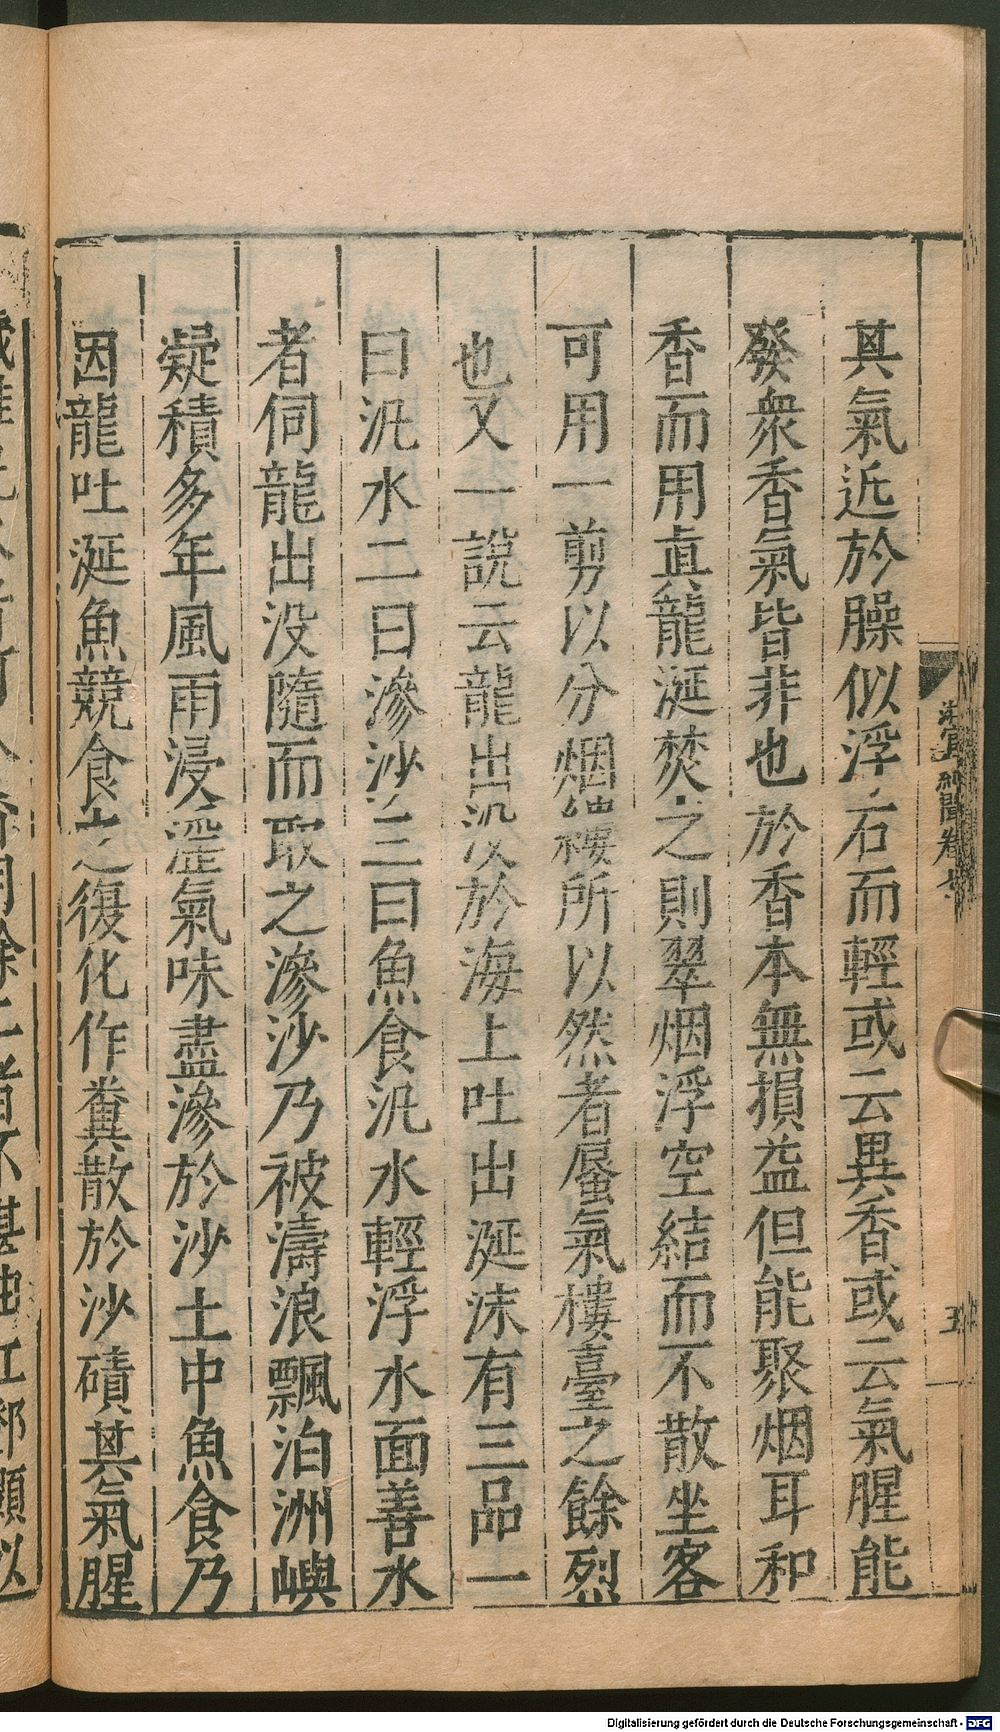 其氣近於臊似浮石而輕或云異香或云氣腥能
發衆香氣皆非也於香本無損益但能聚烟耳和
香而用真龍涎焚之則翠烟浮空結而不散坐客
可用一剪以分烟縷所以然者蜃氣樓臺之餘烈
也又一說云龍出沒於海上吐出涎沫有三品一
曰汎水二曰滲沙三曰魚食汎水輕浮水面善水
者伺龍出没隨而取之滲沙乃被濤浪飄泊洲嶼
凝積多年風雨浸淫氣味盡滲於沙土中魚食乃
因龍吐涎魚競食之復化作糞散於沙磧其氣腥
游宦紀聞卷七
五
Digitalisierung gefördert durch die Deutsche Forschungsgemeinschaft - DFG